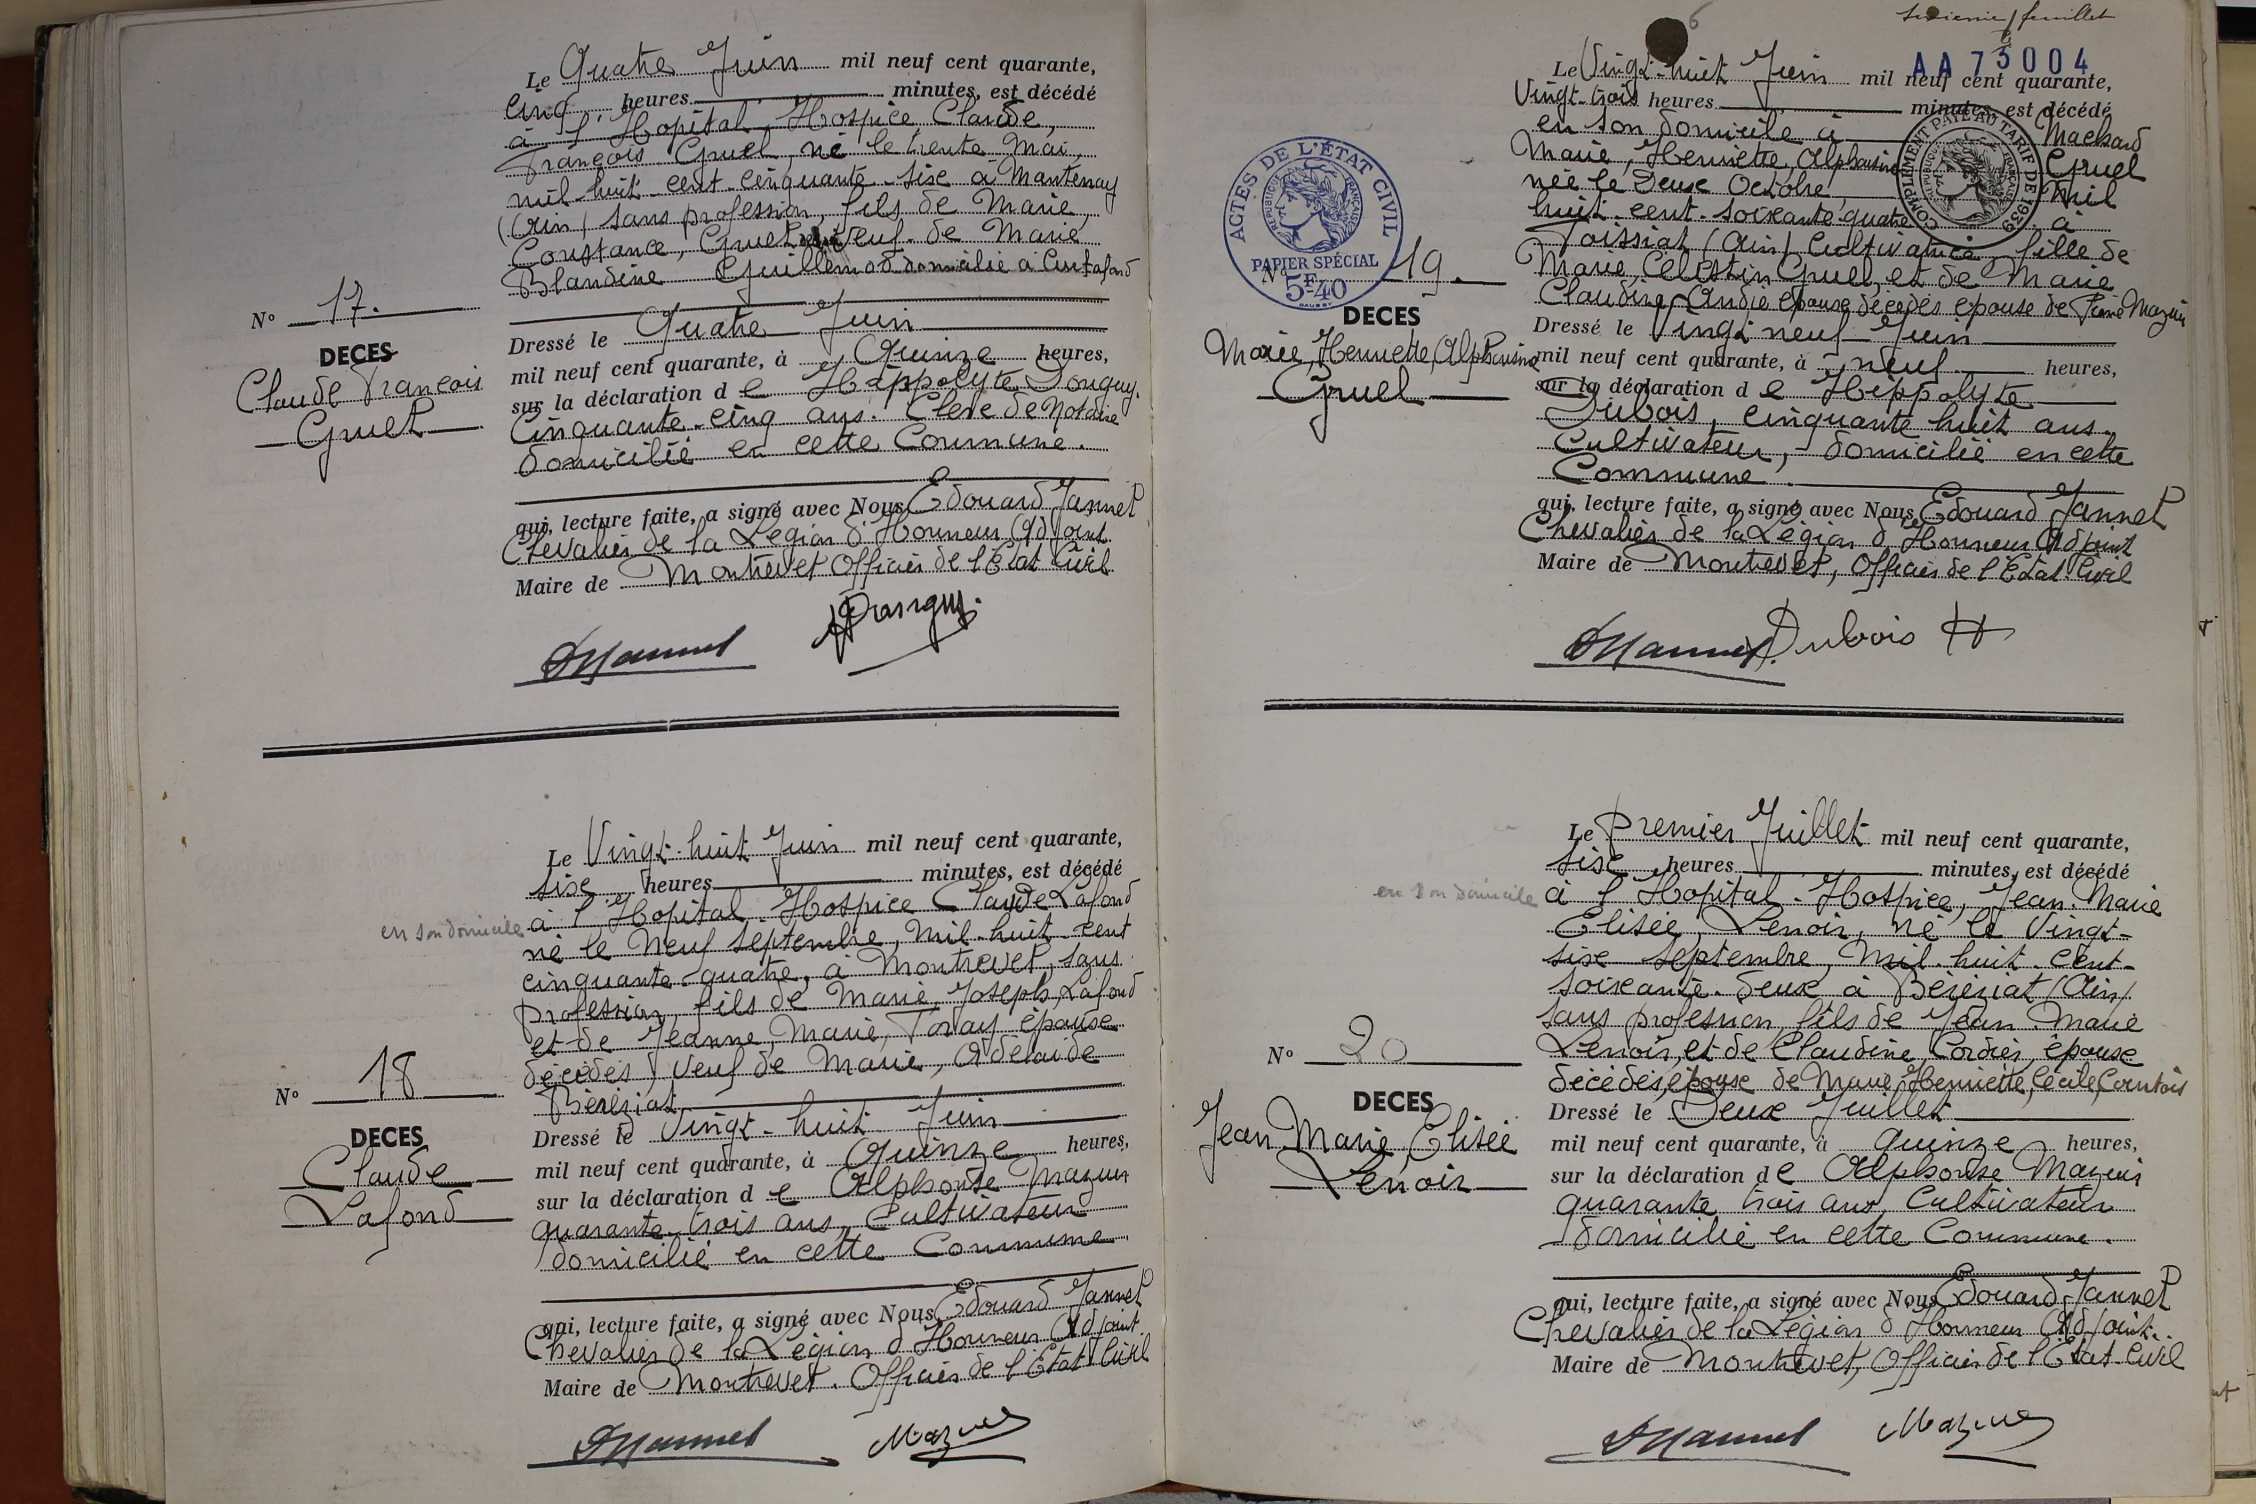 Le Quatre Juin mil neuf cent quarante,
cinq heures minutes, est décédé
à l'Hopital, Hospice Claude,
François Gruel, né le trente Mai,
mil huit cent cinquante-six à Mantenay
(Ain) sans profession, fils de Marie,
Constance, Gruel, Veuf de Marie
Blandine Guillemod domicilié à Curtafond
N° 17.
DECES
Claude François
Gruel
Dressé le Quatre Juin
mil neuf cent quarante, à Quinze heures,
sur la déclaration de Hippolyte Donguy.
Cinquante-cinq ans. Clerc de Notaire
domicilié en cette Commune.
qui, lecture faite, a signé avec Nous Edouard Jannet
Chevalier de la Légion d'Honneur Adjoint
Maire de Montrevet Officier de l'Etat Civil
Le Vingt-huit Juin mil neuf cent quarante,
six heures minutes, est décédé
à l'Hopital-Hospice Claude Lafond
en son domicile
né le Neuf Septembre, Mil-huit-cent
cinquante-quatre, à Montrevet, sans
profession, fils de Marie, Joseph, Lafond
et de Jeanne, Marie, Toray épouse
décédés, Veuf de Marie, Adélaïde
Béréziat
N° 18
DECES
Claude
Lafond
Dressé le Vingt-huit Juin
mil neuf cent quarante, à Quinze heures,
sur la déclaration de Alphonse Mazuir
quarante-trois ans, Cultivateur
domicilié en cette Commune.
qui, lecture faite, a signé avec Nous Edouard Jannet
Chevalier de la Légion d'Honneur Adjoint
Maire de Montrevet. Officier de l'Etat Civil
Mazuir
6
feuillet
AA 73004
Le Vingt-huit Juin mil neuf cent quarante,
Vingt-trois heures minutes, est décédé
en son domicile à Machard
Marie, Henriette, Alphonsine Gruel
née le Deux Octobre Mil
huit-cent-soixante-quatre à
Foissiat (Ain) Cultivatrice, fille de
Marie, Célestin Gruel, et de Marie
Claudine, épouse décédés épouse de Mazuir
ACTES DE L'ÉTAT CIVIL
RÉPUBLIQUE FRANÇAISE
PAPIER SPÉCIAL
5F40
COMPLÉMENT PAYÉ AU TARIF DE 1939
RÉPUBLIQUE FRANÇAISE
N° 19.
DECES
Marie, Henriette, Alphonsine
Gruel
Dressé le Vingt neuf Juin
mil neuf cent quarante, à neuf heures,
sur la déclaration de Hippolyte
Dubois, cinquante huit ans.
Cultivateur, domicilié en cette
Commune.
qui, lecture faite, a signé avec Nous Edouard Jannet
Chevalier de la Légion d'Honneur Adjoint
Maire de Montrevet, Officier de l'Etat-Civil
Dubois H
Le Premier Juillet mil neuf cent quarante,
six heures minutes, est décédé
en son domicile
à l'Hopital-Hospice, Jean-Marie
Elisée, Lenoir, né le Vingt-
six Septembre, Mil-huit-cent-
soixante-deux à Béréziat (Ain)
sans profession, fils de Jean-Marie
Lenoir, et de Claudine, Cordier, épouse
décédés, épouse de Marie, Henriette, Cécile, Courtois
N° 20
DECES
Jean Marie Elisée
Lenoir
Dressé le Deux Juillet
mil neuf cent quarante, à quinze heures,
sur la déclaration de Alphonse Mazuir
quarante trois ans, Cultivateur
domicilié en cette Commune.
qui, lecture faite, a signé avec Nous Edouard Jannet
Chevalier de la Légion d'Honneur Adjoint.
Maire de Montrevet, Officier de l'Etat-Civil
Mazuir